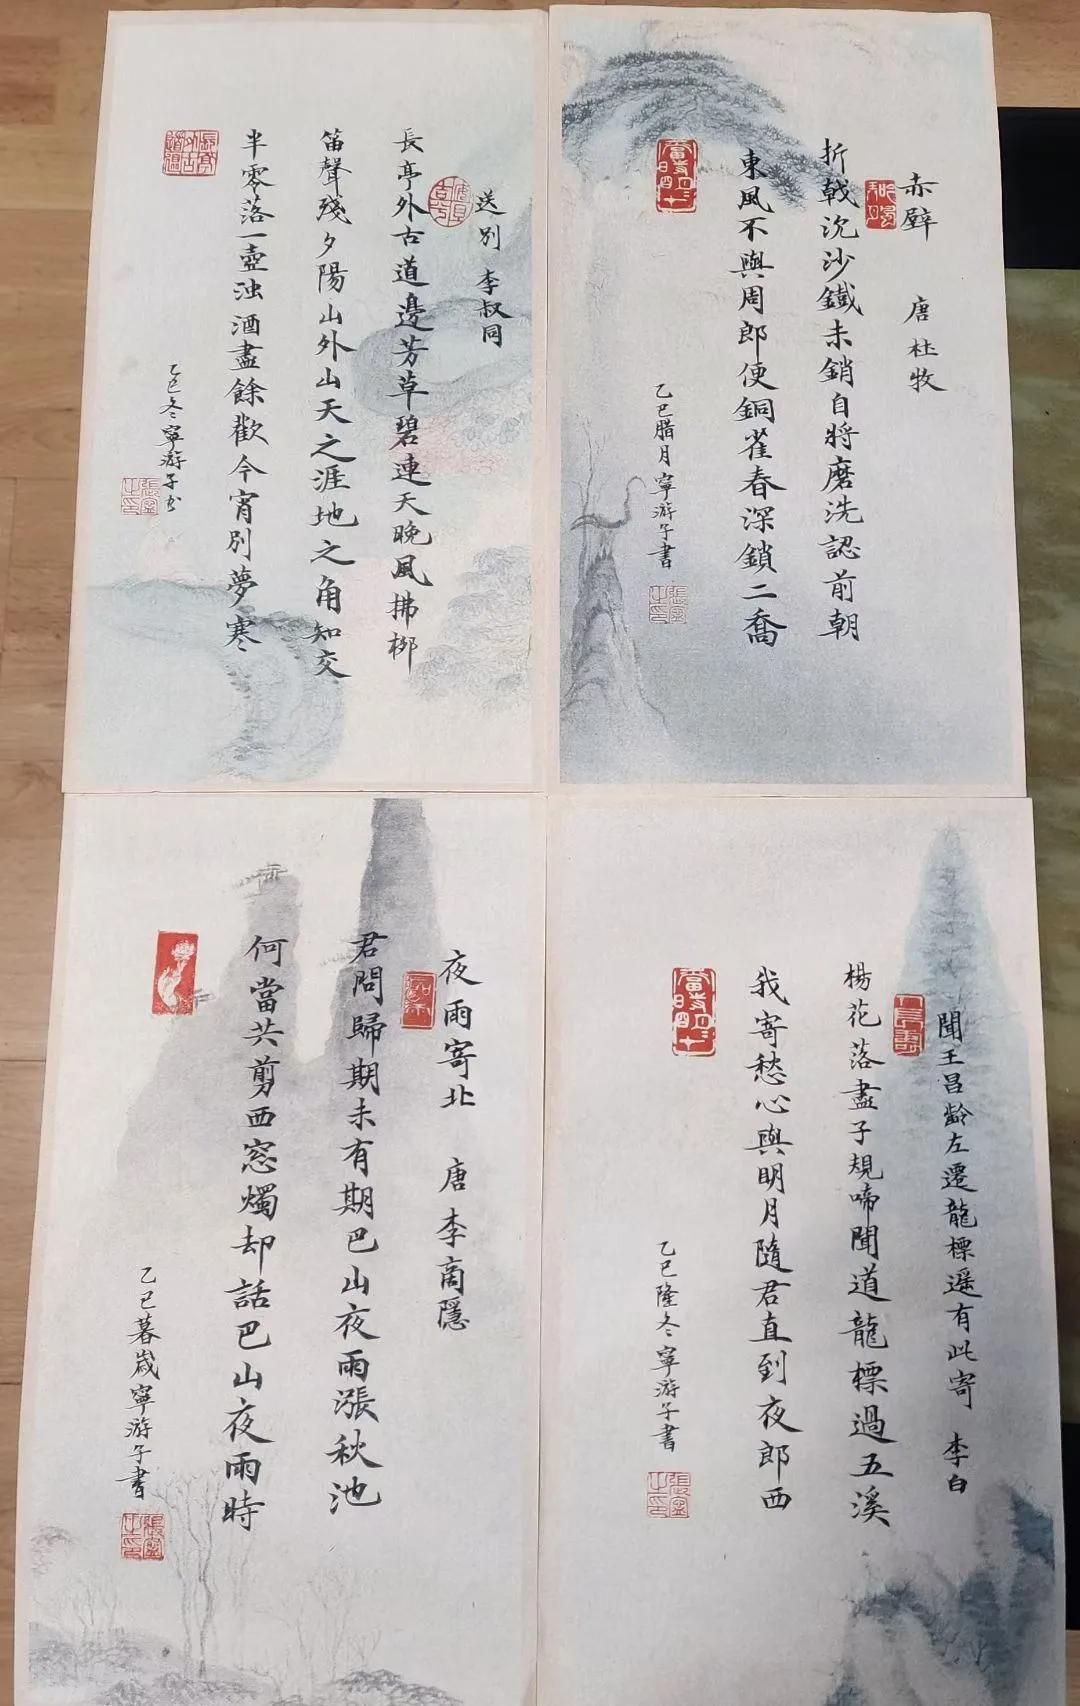 赤壁 唐 杜牧
折戟沉沙鐵未銷自將磨洗認前朝
東風不與周郎便銅雀春深鎖二喬
乙巳腊月寧游子書
送別 李叔同
長亭外古道邊芳草碧連天晚風拂柳
笛聲殘夕陽山外山天之涯地之角知交
半零落一壺浊酒盡餘歡今宵別夢寒
乙巳冬寧游子書
聞王昌齡左遷龍標遥有此寄 李白
楊花落盡子規啼聞道龍標過五溪
我寄愁心與明月隨君直到夜郎西
乙巳隆冬寧游子書
夜雨寄北 唐李商隱
君問歸期未有期巴山夜雨漲秋池
何當共剪西窓燭却話巴山夜雨時
乙巳暮歲寧游子書